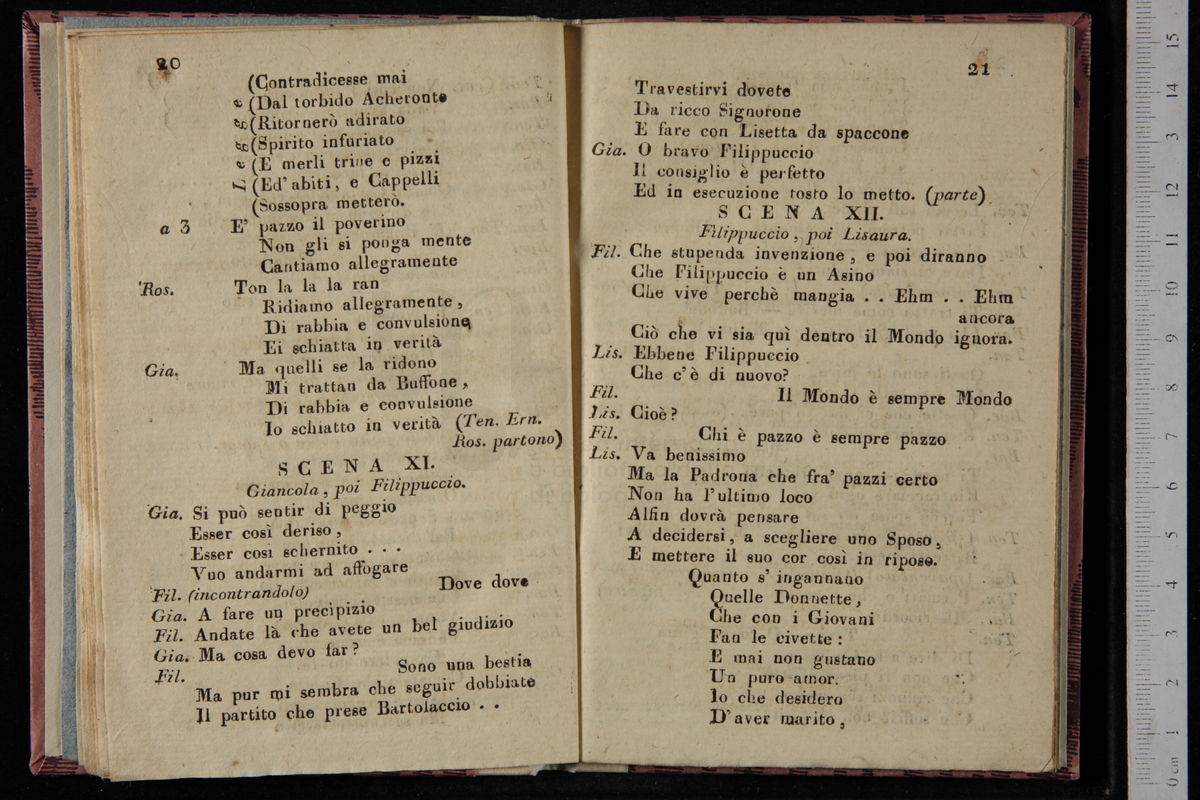 20
(Contradicesse mai
(Dal torbido Acheronte
(Ritornerò adirato
(Spirito infuriato
(E merli trine e pizzi
(Ed' abiti, e Cappelli
(Sossopra metterò.
a 3 E' pazzo il poverino
Non gli si ponga mente
Cantiamo allegramente
Ros. Ton la la la ran
Ridiamo allegramente,
Di rabbia e convulsione
Ei schiatta in verità
Gia. Ma quelli se la ridono
Mi trattan da Buffone,
Di rabbia e convulsione
Io schiatto in verità (Ten. Ern.
Ros. partono)
SCENA XI.
Giancola, poi Filippuccio.
Gia. Si può sentir di peggio
Esser così deriso,
Esser così schernito . . .
Vuo andarmi ad affogare
Fil. (incontrandolo) Dove dove
Gia. A fare un precipizio
Fil. Andate là che avete un bel giudizio
Gia. Ma cosa devo far?
Fil. Sono una bestia
Ma pur mi sembra che seguir dobbiate
Il partito che prese Bartolaccio . .
21
Travestirvi dovete
Da ricco Signorone
E fare con Lisetta da spaccone
Gia. O bravo Filippuccio
Il consiglio è perfetto
Ed in esecuzione tosto lo metto. (parte)
SCENA XII.
Filippuccio, poi Lisaura.
Fil. Che stupenda invenzione, e poi diranno
Che Filippuccio è un Asino
Che vive perchè mangia . . Ehm . . Ehm
ancora
Ciò che vi sia quì dentro il Mondo ignora.
Lis. Ebbene Filippuccio
Che c'è di nuovo?
Fil. Il Mondo è sempre Mondo
Lis. Cioè?
Fil. Chi è pazzo è sempre pazzo
Lis. Va benissimo
Ma la Padrona che fra' pazzi certo
Non ha l'ultimo loco
Alfin dovrà pensare
A decidersi, a scegliere uno Sposo,
E mettere il suo cor così in riposo.
Quanto s' ingannano
Quelle Donnette,
Che con i Giovani
Fan le civette:
E mai non gustano
Un puro amor.
Io che desidero
D'aver marito,
0 cm 1 2 3 4 5 6 7 8 9 10 11 12 13 14 15